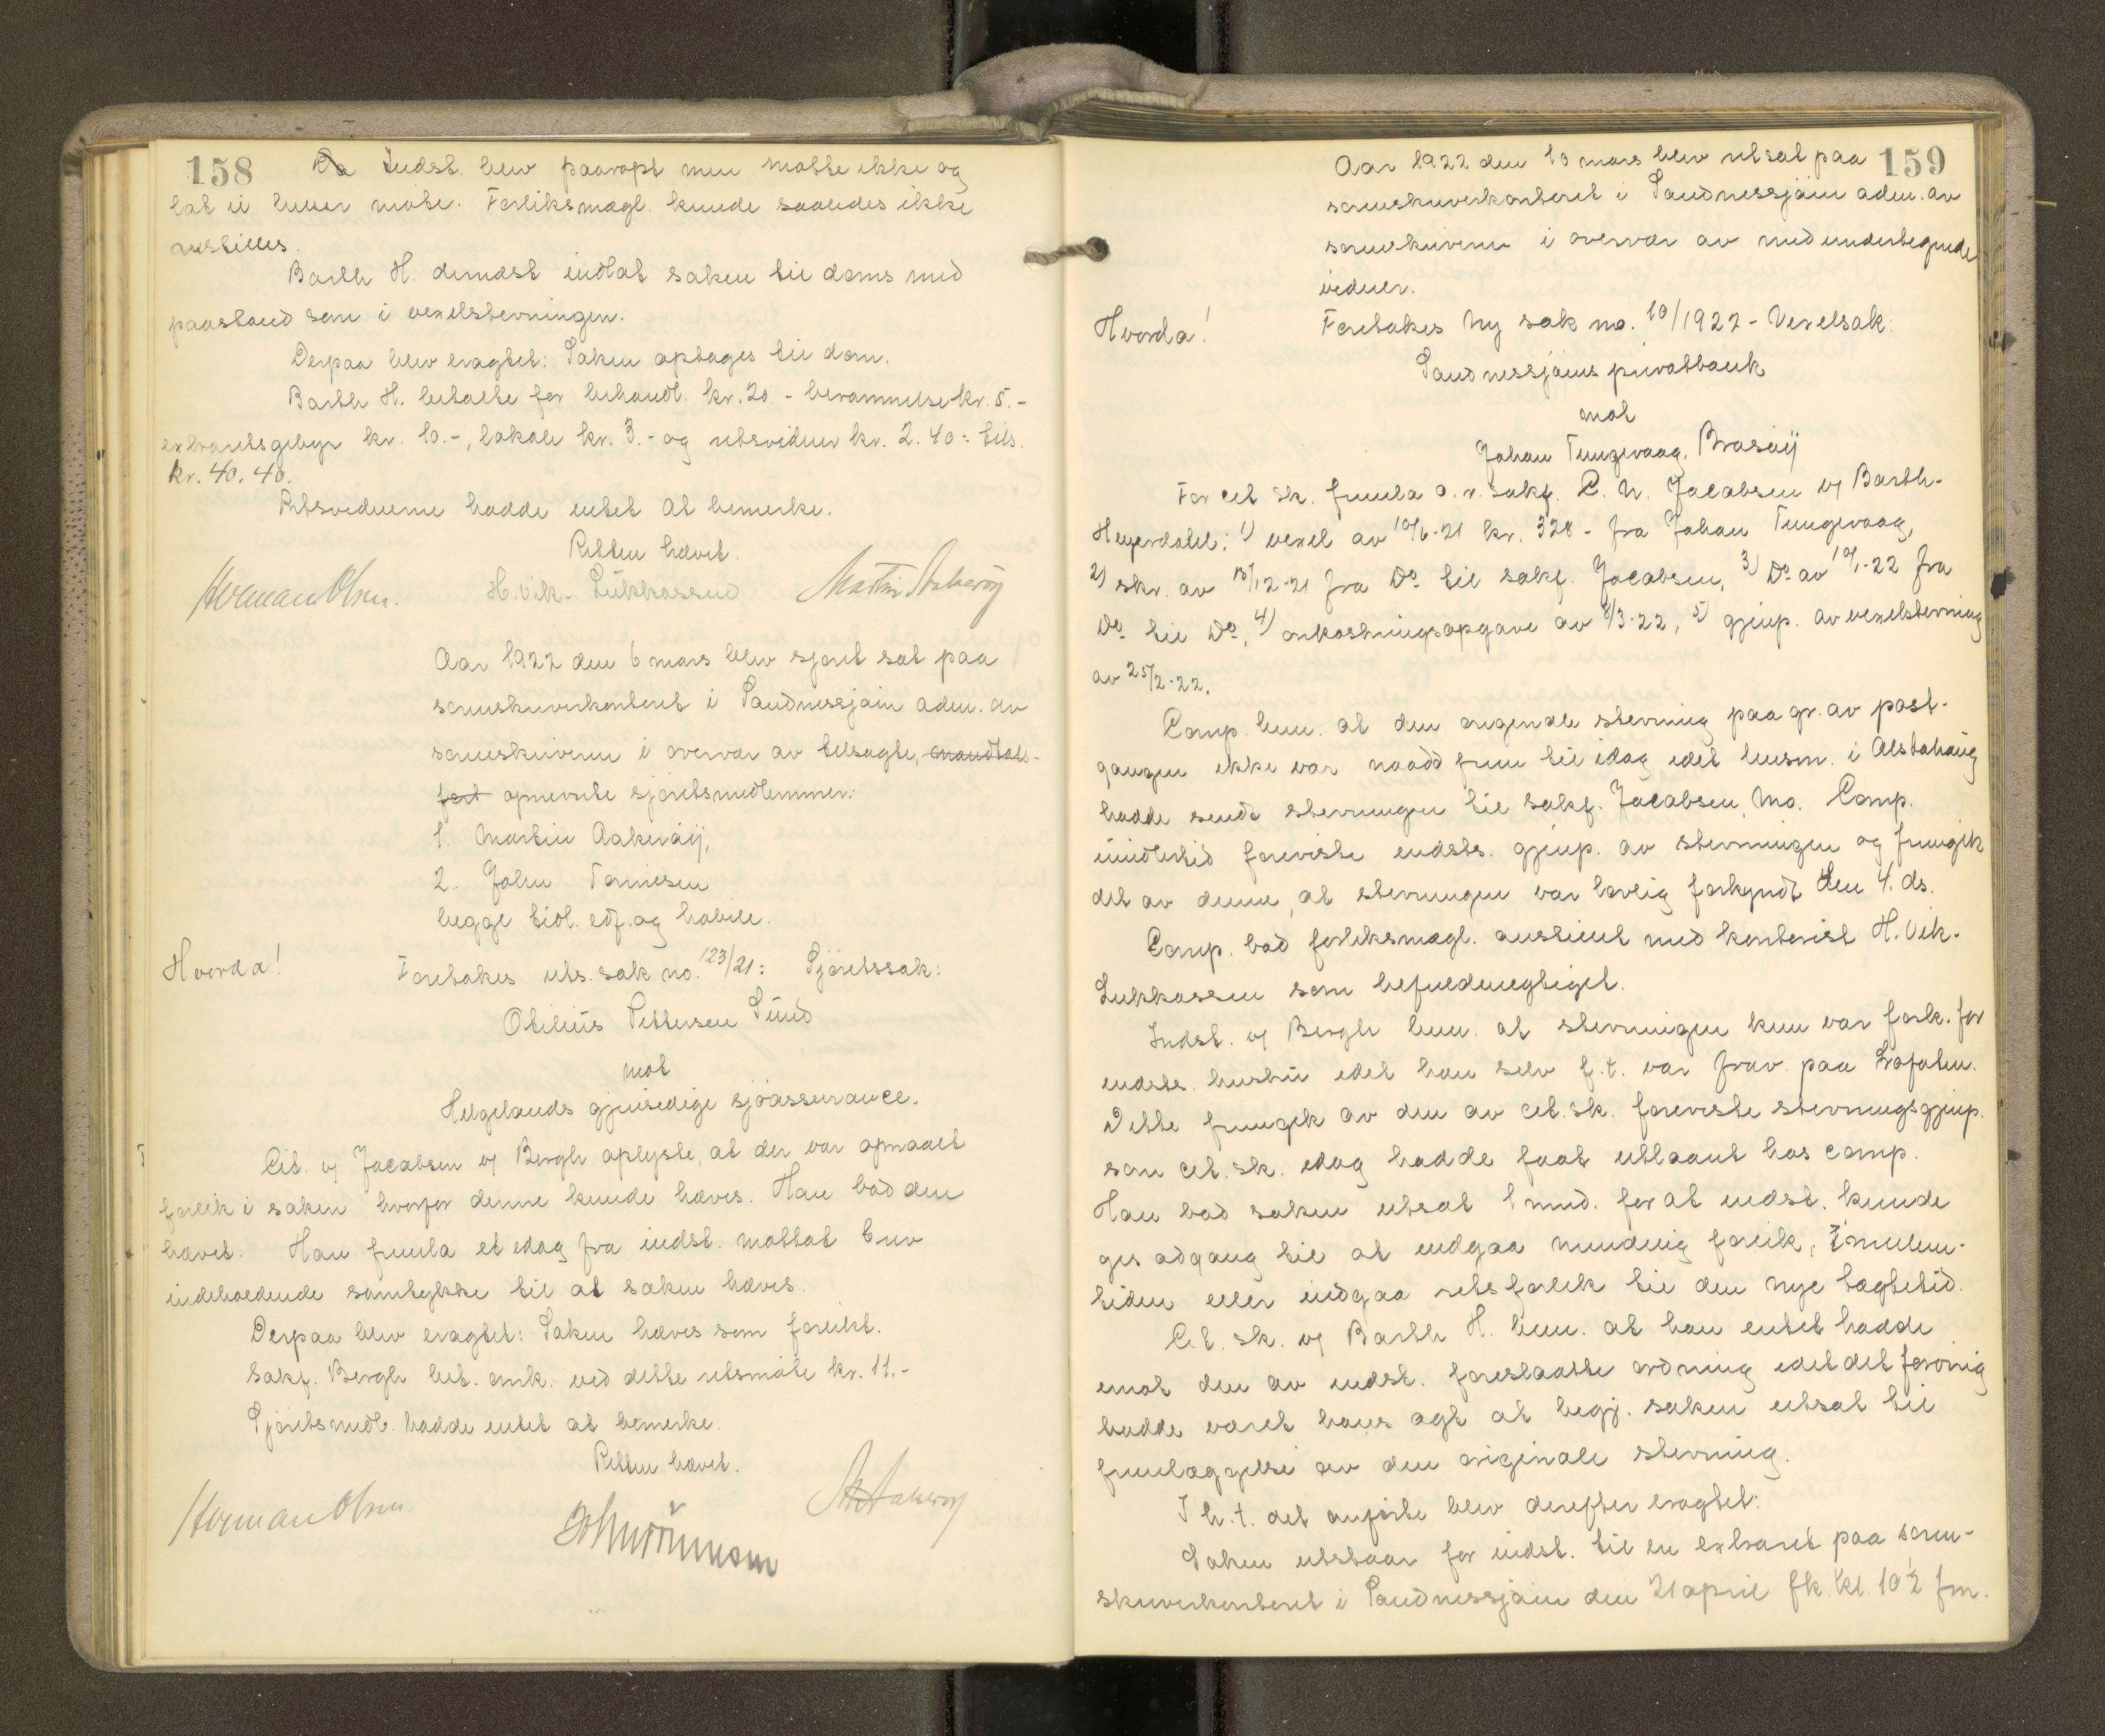 158
Indst. blev paaropt men møtte ikke og
lot ei heller møte. Forliksmægl. kunde saaledes ikke
anstilles.
Barth H. dernæst indlot saken til doms med
paastand som i vexelstevningen.
Derpaa blev eragtet: Saken optages til dom.
Barth H. betalte for behandl. kr. 20.- berammelse kr. 5.-
extraretsgebyr kr. 10.-, lokale kr. 3.- og retsvidner kr. 2.40 = tils.
kr. 40.40.
Retsvidnerne hadde intet at bemerke.
Retten hævet.
Herman Olsen. H. Vik-Lukkassen Martin Aakerøy
Aar 1922 den 6 mars blev sjøret sat paa
sorenskriverkontoret i Sandnessjøen adm. av
sorenskriveren i overvær av tilsagte, mandtals-
ført opnevnte sjøretsmedlemmer:
1. Martin Aakerøÿ,
2. John Tønnesen
begge tidl. edf. og habile.
Hvorda!
Foretokes uts. sak no. 123/21: Sjøretssak:
Otelius Pettersen Sund
mot
Helgelands gjensidige sjøassurance.
Cit. v/ Jacobsen v/ Bergh oplyste, at der var opnaaet
forlik i saken hvorfor denne kunde hæves. Han bad den
hævet. Han fremla et idag fra indst. mottat brev
indeholdende samtykke til at saken hæves.
Derpaa blev eragtet: Saken hæves som forlikt.
Sakf. Bergh bet. omk. ved dette retsmøte kr. 11.-
Sjøretsmedl. hadde intet at bemerke.
Retten hævet.
Herman Olsen M Aakerøy
159
Aar 1922 den 10 mars blev ret sat paa
sorenskriverkontoret i Sandnessjøen adm. av
sorenskriveren i overvær av medundertegnede
vidner.
Hvorda!
Foretokes ny sak no. 10/1922 - Vexelsak:
Sandnessjøens privatbank
mot
Johan Tungevaag, Brasøÿ
For cit. sk. fremla o.r. sakf. C. N. Jacobsen v/ Barth-
Heyerdahl: 1) vexel av 10/6-21 kr. 328 - fra Johan Tungevaag,
2) skr. av 15/12-21 fra Do til sakf. Jacobsen, 3) Do av 10/1-22 fra
Do til Do, 4) omkostningsopgave av 8/3-22, 5) gjenp. av vexelstevning
av 25/2-22.
Comp. bem. at den originale stevning paa gr. av post-
gangen ikke var naadd frem til idag idet lensm. i Alstahaug
hadde sendt stevningen til sakf. Jacobsen, Mo. Comp.
imidlertid foreviste indsts. gjenp. av stevningen og fremgik
det av denne, at stevningen var lovlig forkyndt den 4. ds.
Comp. bad forliksmægl. anstillet med kontorist H. Vik-
Lukkassen som befuldmegtiget.
Indst. v/ Bergh bem. at stevningen kun var fork. for
indsts. hustru idet han selv f.t. var frav. paa Lofoten.
Dette fremgik av den av cit. sk. foreviste stevningsgjenp.
som cit. sk. idag hadde faat utlaant hos comp.
Han bad saken utsat 1 mnd. for at indst. kunde
ges adgang til at indgaa mindelig forlik, i mellem-
tiden eller indgaa retsforlik til den nye tægtetid.
Cit. sk. v/ Barth H. bem. at han intet hadde
imot den av indst. foreslaatte ordning idet det forøvrig
hadde været hans agt at begj. saken utsat til
fremlæggelse av den originale stevning.
I h.t. det anførte blev derefter eragtet:
Saken utstaar for indst. til en extraret paa soren-
skriverkontoret i Sandnessjøen den 21 april fk. kl. 10½ fm.